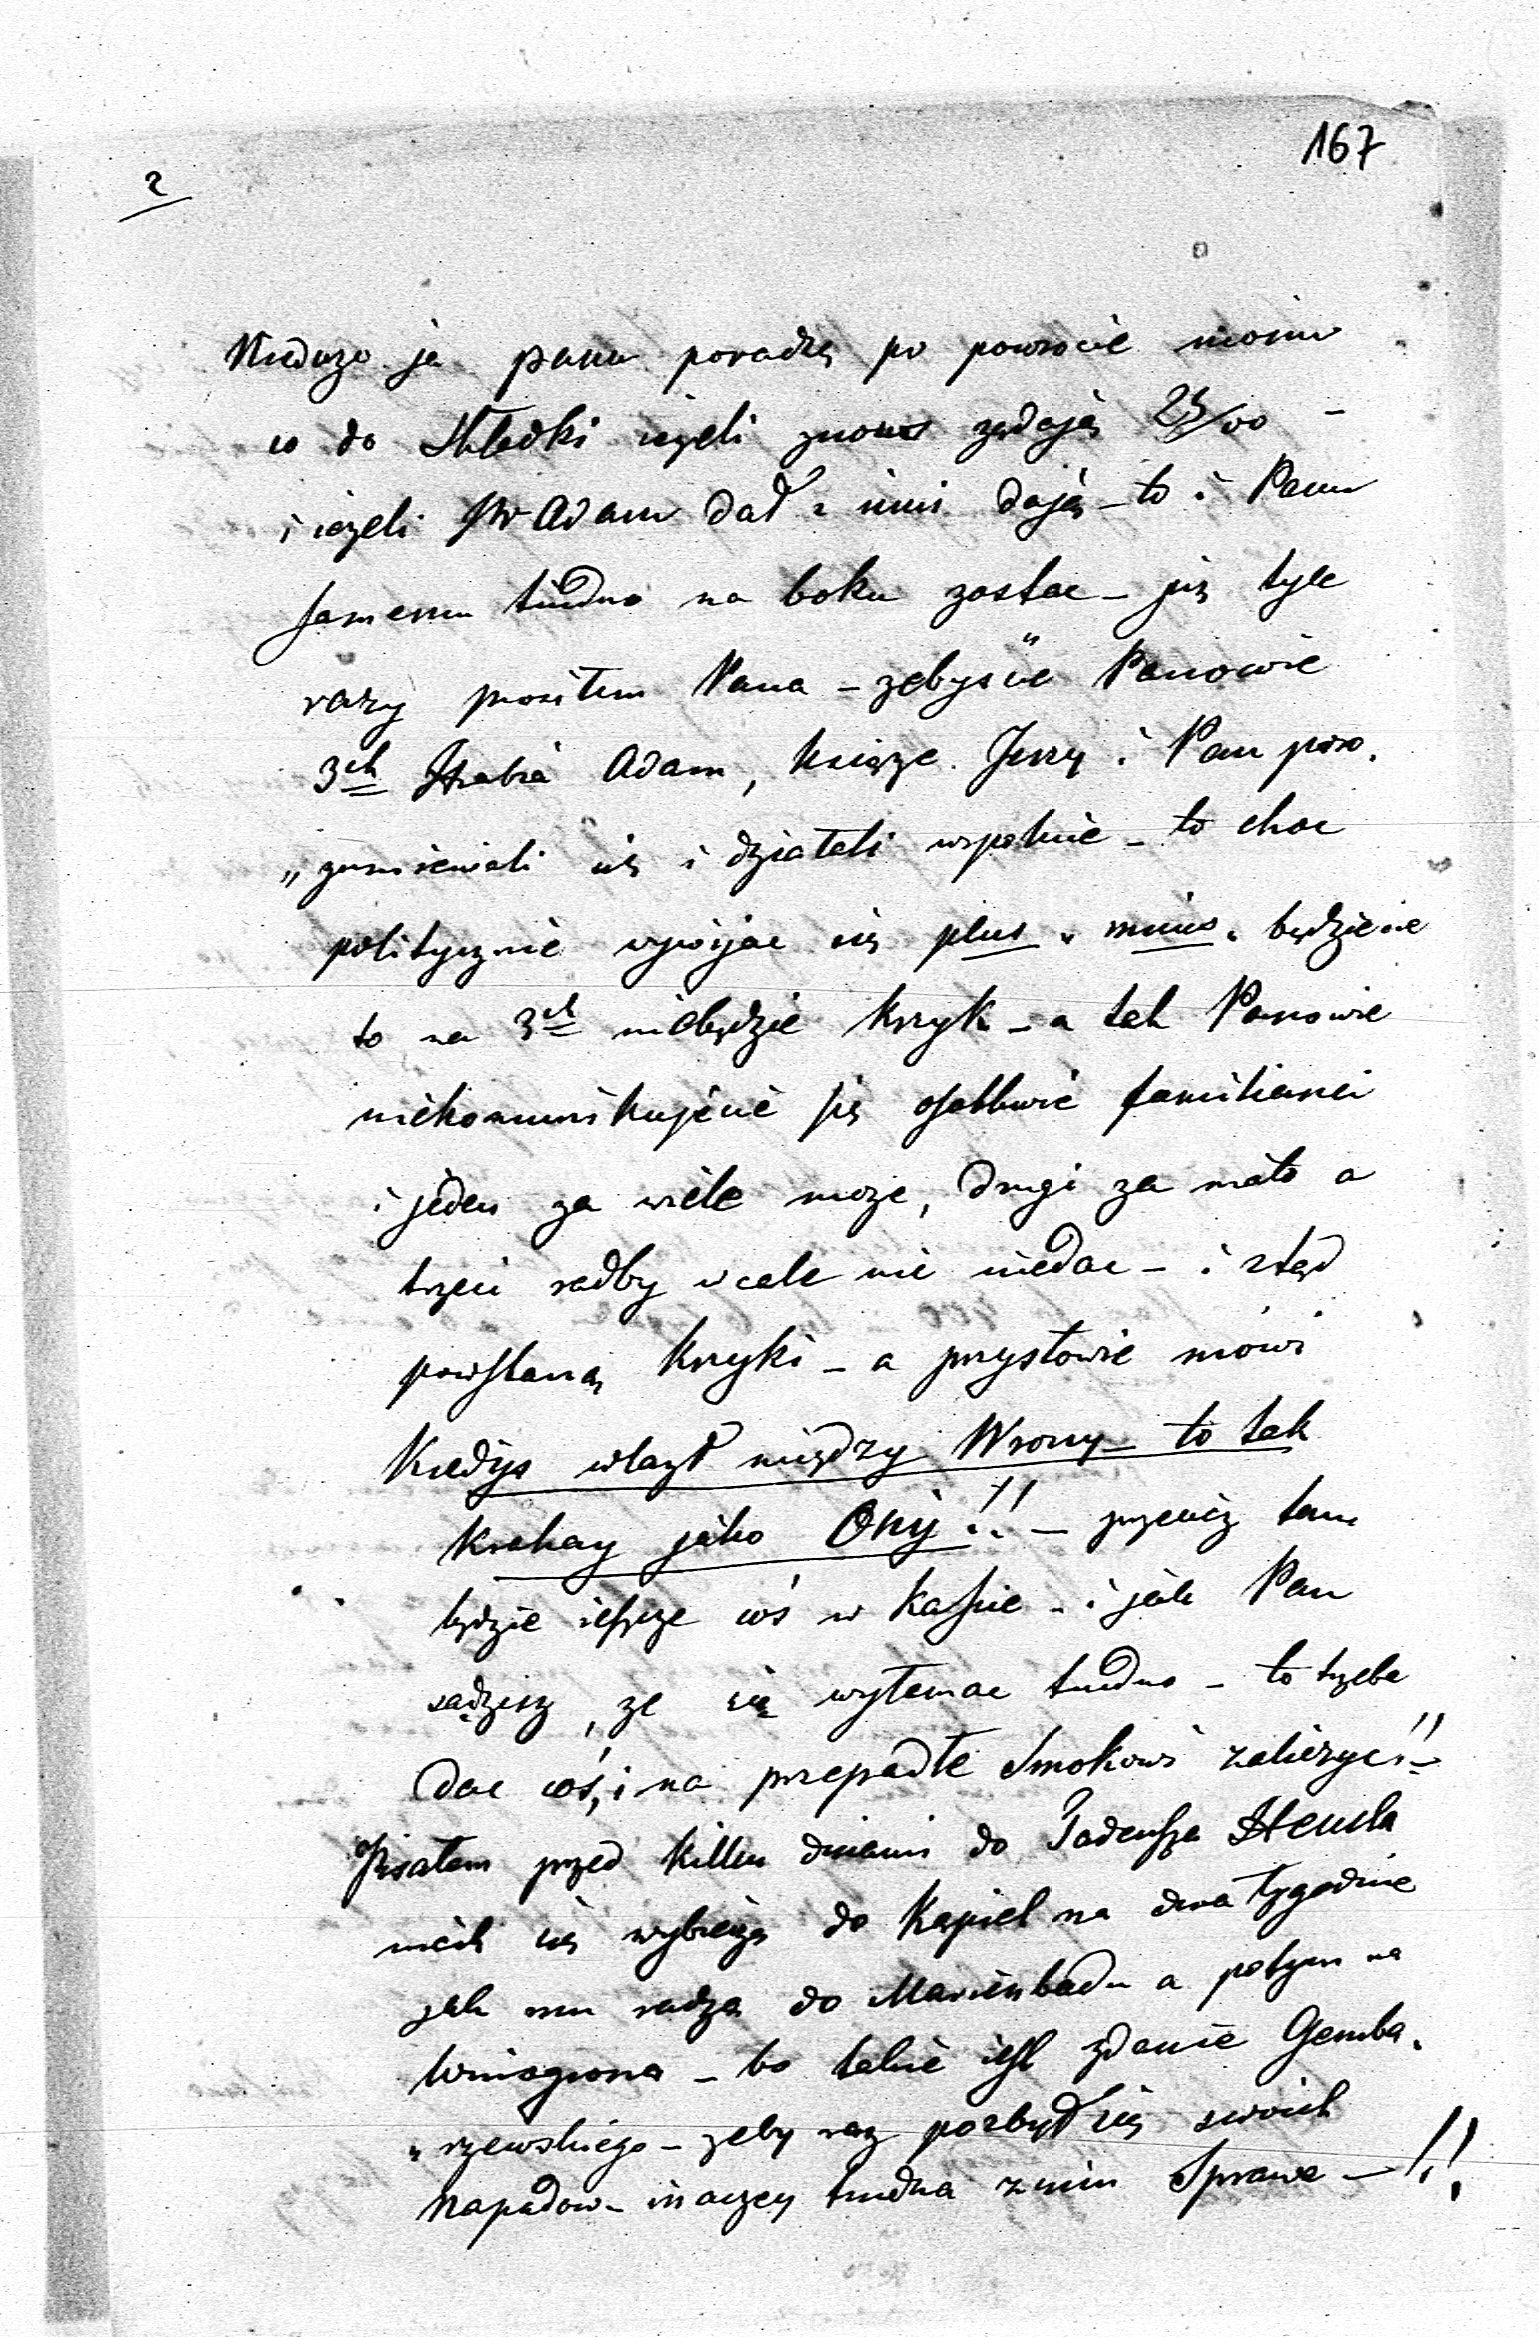 167
2
Nieduzo ja panu poradzę po powrocie moim
co do Składki ieżeli znowu ządają 25/00 –
i ieżeli Hr Adam dał i inni dają – to i Panu
samemu trudno na boku zostac – już tyle
razy prosiłem Pana – zebyście Panowie
3ch Hrabia Adam, książe Jerzy i Pan poro.
„zumiewali się i działali wspolnie – to choc
politycznie wywijac się plus minus będziecie
to na 3ch niebędzie Krzyk – a tak Panowie
niekomunikujecie się osobliwie familianci
i jeden za wiele może, drugi za mało a
trzeci radby wcale nic niedac – i ztąd
powstaną Krzyki – a przysłowie mówi
Kiedyś wlazł między Wrony – to tak
Krakay jako Ony!! – przeciez tam
będzie ieszcze coś w Kassie – i jak Pan
sądzisz, ze się wyłamac trudno – to trzeba
dac coś, i na przepadłe Smokowi zaliczyc!! –
Pisałem przed kilku dniami do Tadeusza
niech się wybierze do Kąpiel na dwa tygodnie
jak mu radzą do Marienbadu a potym na
Winogrona – bo takie iest zdanie Gemba.
„rzewskiego – zeby raz pozbył się swoich
Napadow – inaczey trudna z nim Sprawa – !!